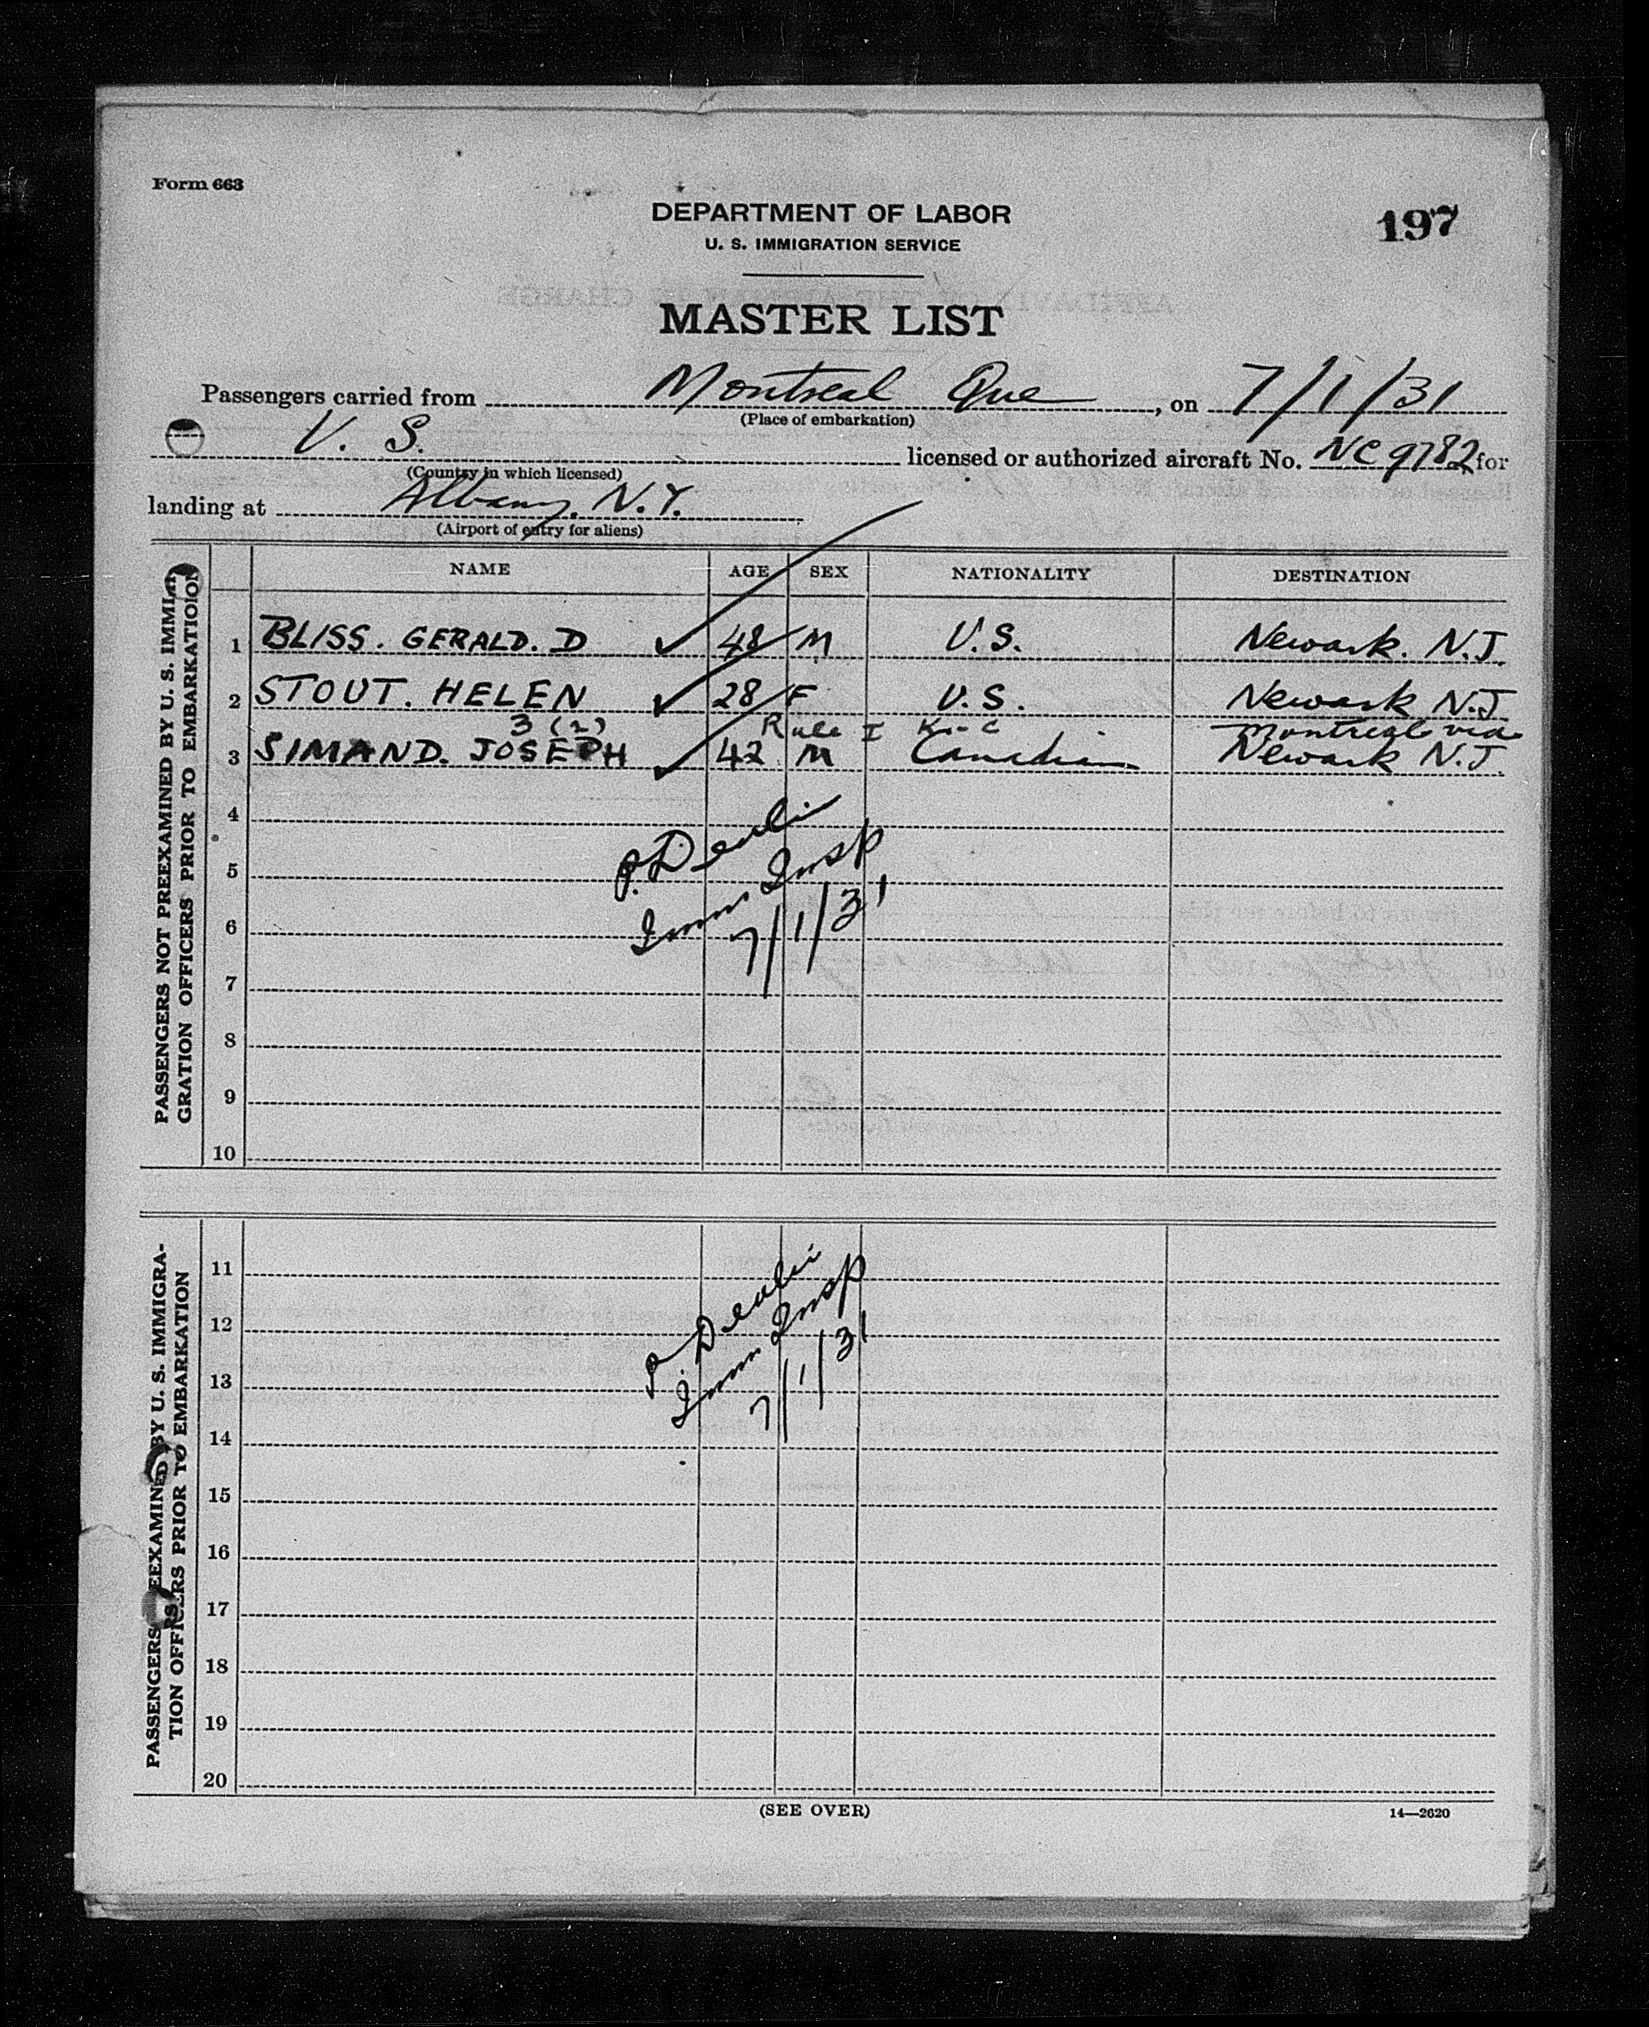 Form 663
DEPARTMENT OF LABOR
U. S. IMMIGRATION SERVICE
197
MASTER LIST
Passengers carried from Montreal Que, on 7/1/31
(Place of embarkation)
U. S. licensed or authorized aircraft No. NC 9782 for
(Country in which licensed)
landing at Albany. N.Y.
(Airport of entry for aliens)
NAME AGE SEX NATIONALITY DESTINATION
PASSENGERS NOT PREEXAMINED BY U. S. IMMI
GRATION OFFICERS PRIOR TO EMBARKATION
1 BLISS. GERALD. D ✓ 48 M U.S. Newark. N.J.
2 STOUT. HELEN ✓ 28 F U.S. Newark N.J
3 (2) Rule I Montreal via
3 SIMAND. JOSEPH ✓ 42 M Canadian Newark N.J.
4
5
6
7
8
9
10
P. D
Imm Insp
7/1/31
PASSENGERS EEXAMINED BY U. S. IMMIGRA-
TION OFFICERS PRIOR TO EMBARKATION
11
12
13
14
15
16
17
18
19
20
P. D
Imm Insp
7/1/31
(SEE OVER)
14—2620